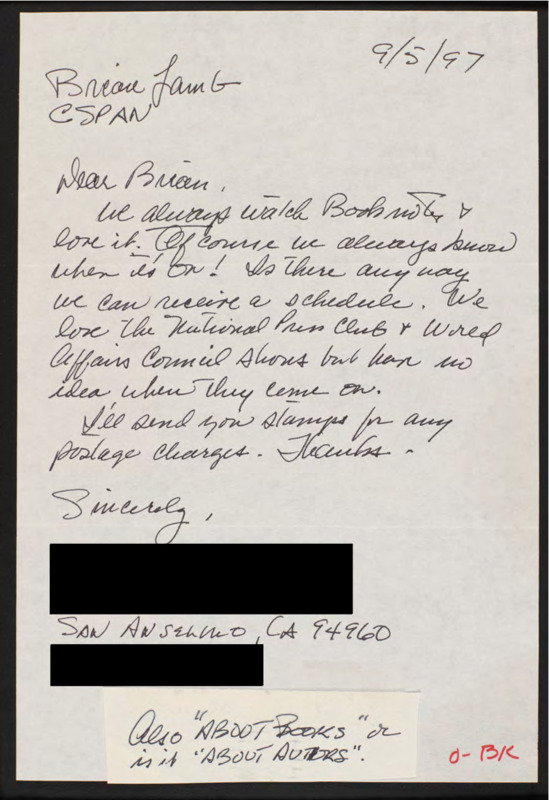 9/5/97
Brian Lamb
CSPAN
Dear Brian,
We always watch Booknotes &
love it. Of course we always know
when it's on! Is there any way
we can receive a schedule. We
love the National Press Club & World
Affairs Council shows but have no
idea when they come on.
I'll send you stamps for any
postage charges. Thanks.
Sincerely,
SAN ANSELMO, CA 94960
Also "ABOUT BOOKS" or
is it "ABOUT AUTORS".
O-BK